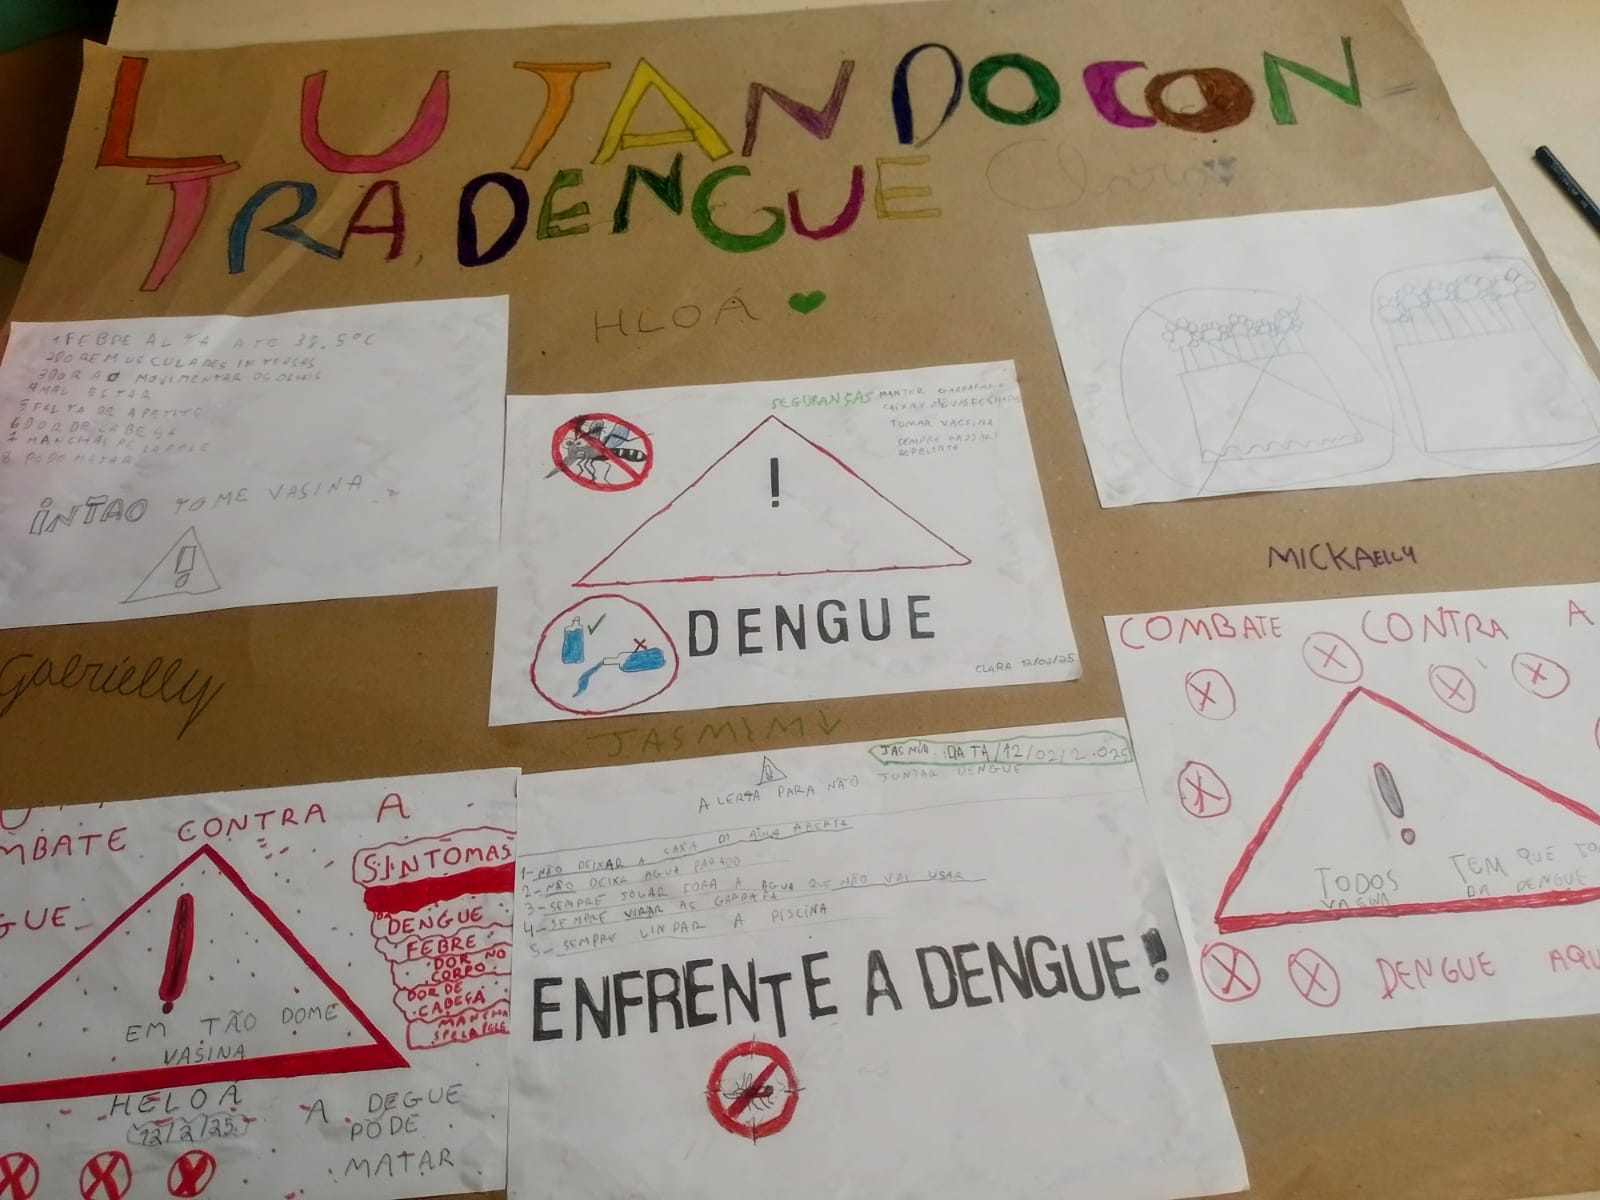 LUTANDO CON-
TRA DENGUE
Clara
HLOÁ
1 FEBRE ALTA ATÉ 38.5°C
2 DOREMUSCULARES INTENSAS
3 DOR AO MOVIMENTAR OS OLHOS
4 MAL ESTAR
5 FALTA DE APETITO
6 DOR DE CABEÇA
7 MANCHAS PELAPELE
8 PODE MATAR
INTAO TOME VASINA
!
Gabrielly
SEGURANÇAS MANTER GARRAFAS E
CAIXAS D'AGUAS FECHADAS
TOMAR VACSINA
SEMPRE PASSAR
REPELENTE
!
DENGUE
CLARA 12/02/25
MICKAELLY
COMBATE CONTRA A
!
TODOS TEM QUE TO
VASINA DA DENGUE
DENGUE AQU
MBATE CONTRA A
GUE
!
EM TÃO DOME
VASINA
SINTOMAS
DENGUE
FEBRE
DOR NO
CORPO
DOR DE
CABEÇA
MANCHA
SPELAPELE
HELOÁ
12/2/25
A DEGUE
PODE
MATAR
JASMIM
JASMIM DATA/12/02/2.025
!
ALERTA PARA NÃO JUNTAR DENGUE
1-NÃO DEIXAR A CAXA DI AGUA ABERTA
2-NÃO DEIXE AGUA PARADO
3-SEMPRE JOGAR FORA A AGUA QUE NÃO VAI USAR
4-SEMPRE VIRAR AS GARRAFA
5-SEMPRE LINPAR A PISCINA
ENFRENTE A DENGUE!